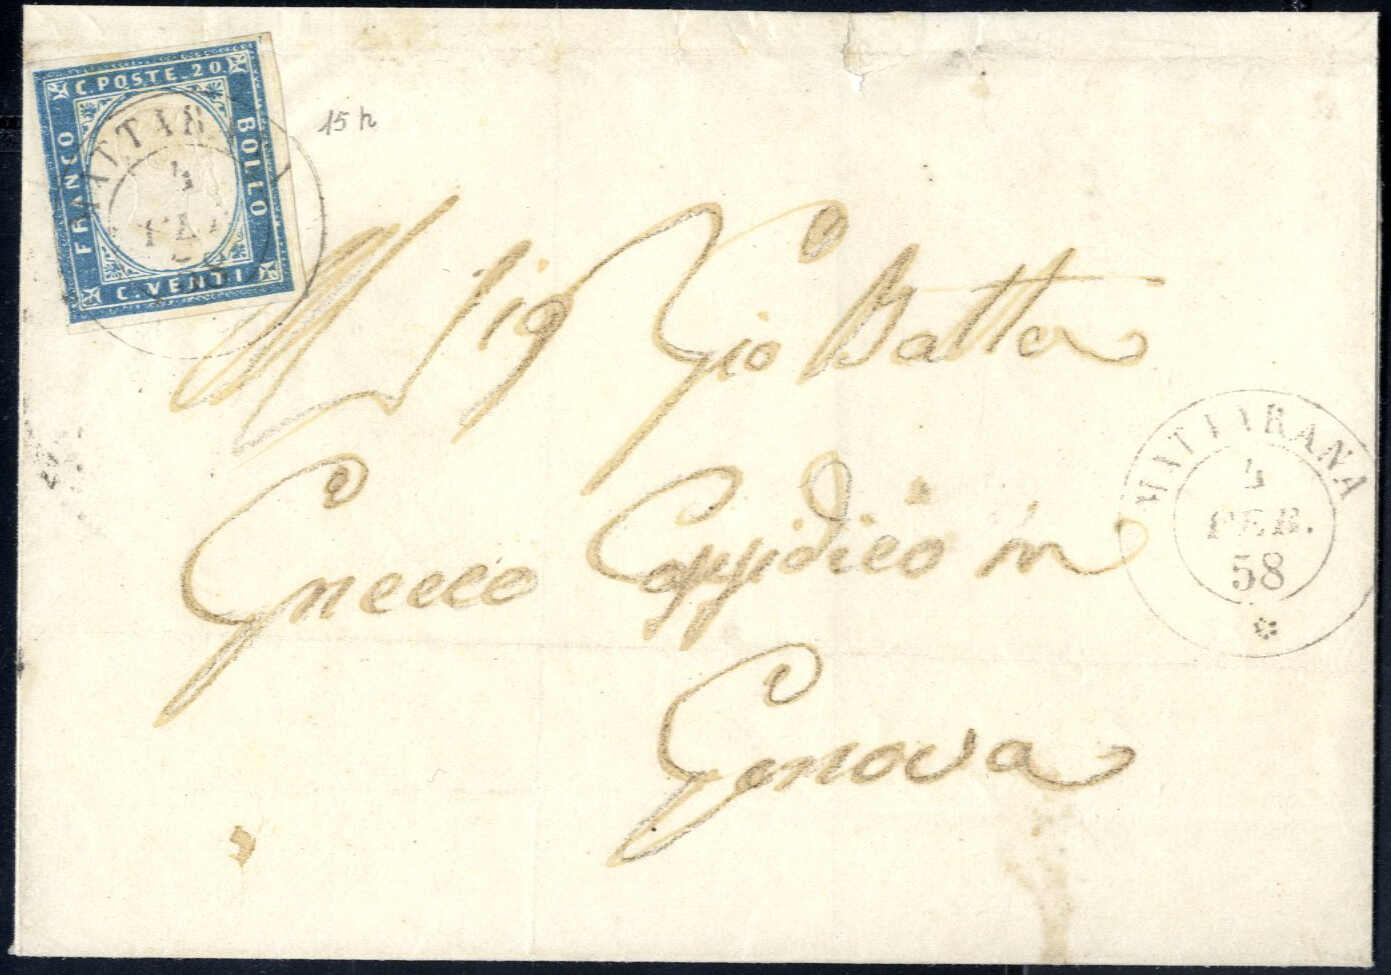 C. POSTE. 20
FRANCO
BOLLO
C. VENTI
15 h
Sig Gio Batta
Gnecco in
Genova
MATTARANA
4
FEB.
58